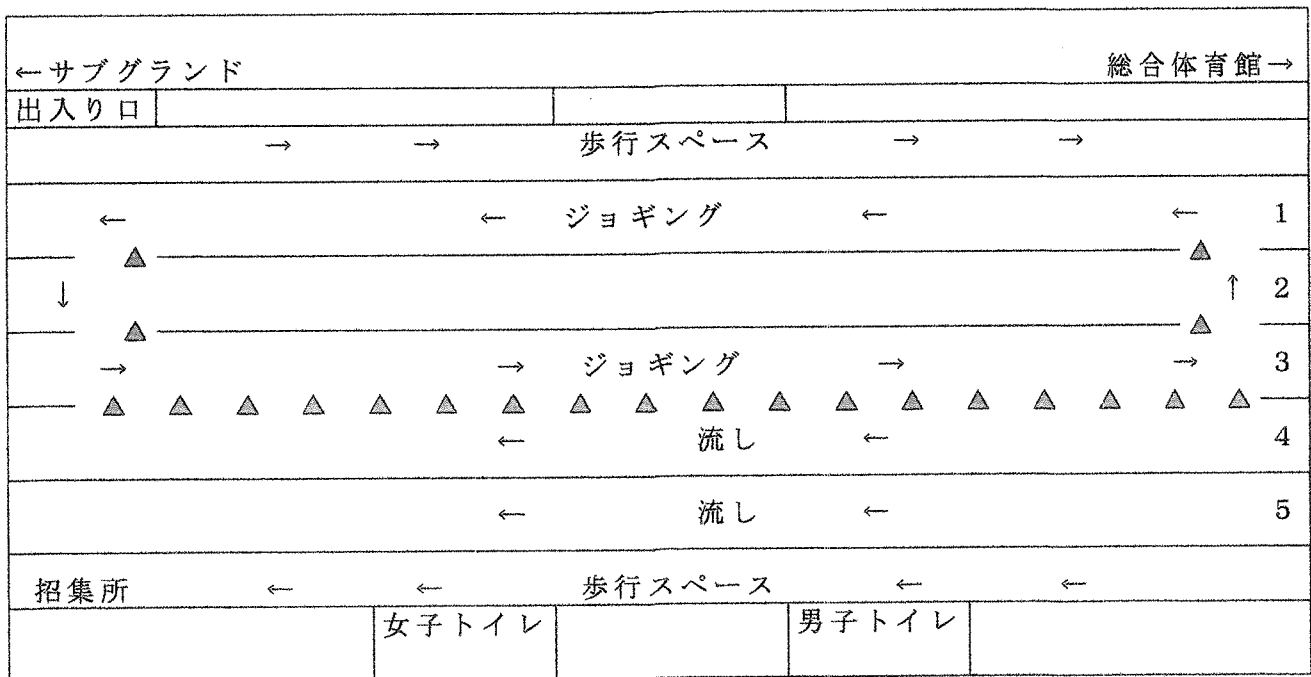 ←サブグランド 総合体育館→
出入り口
→ → 歩行スペース → →
← ← ジョギング ← ← 1
↓ ↑ 2
→ → ジョギング → → 3
← 流し ← 4
← 流し ← 5
招集所 ← ← 歩行スペース ← ←
女子トイレ 男子トイレ